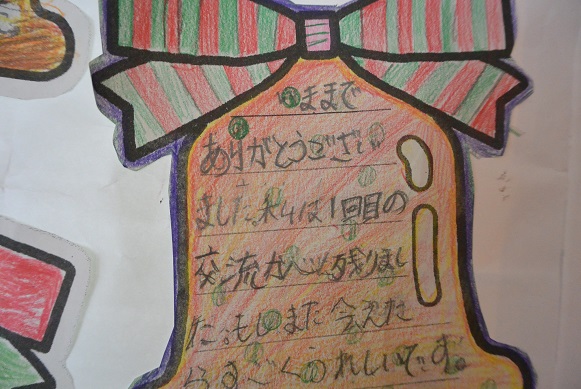 いままで
ありがとうござい
ました。私は1回目の
交流が心に残りまし
た。もしまた会えた
らすごくうれしいです。